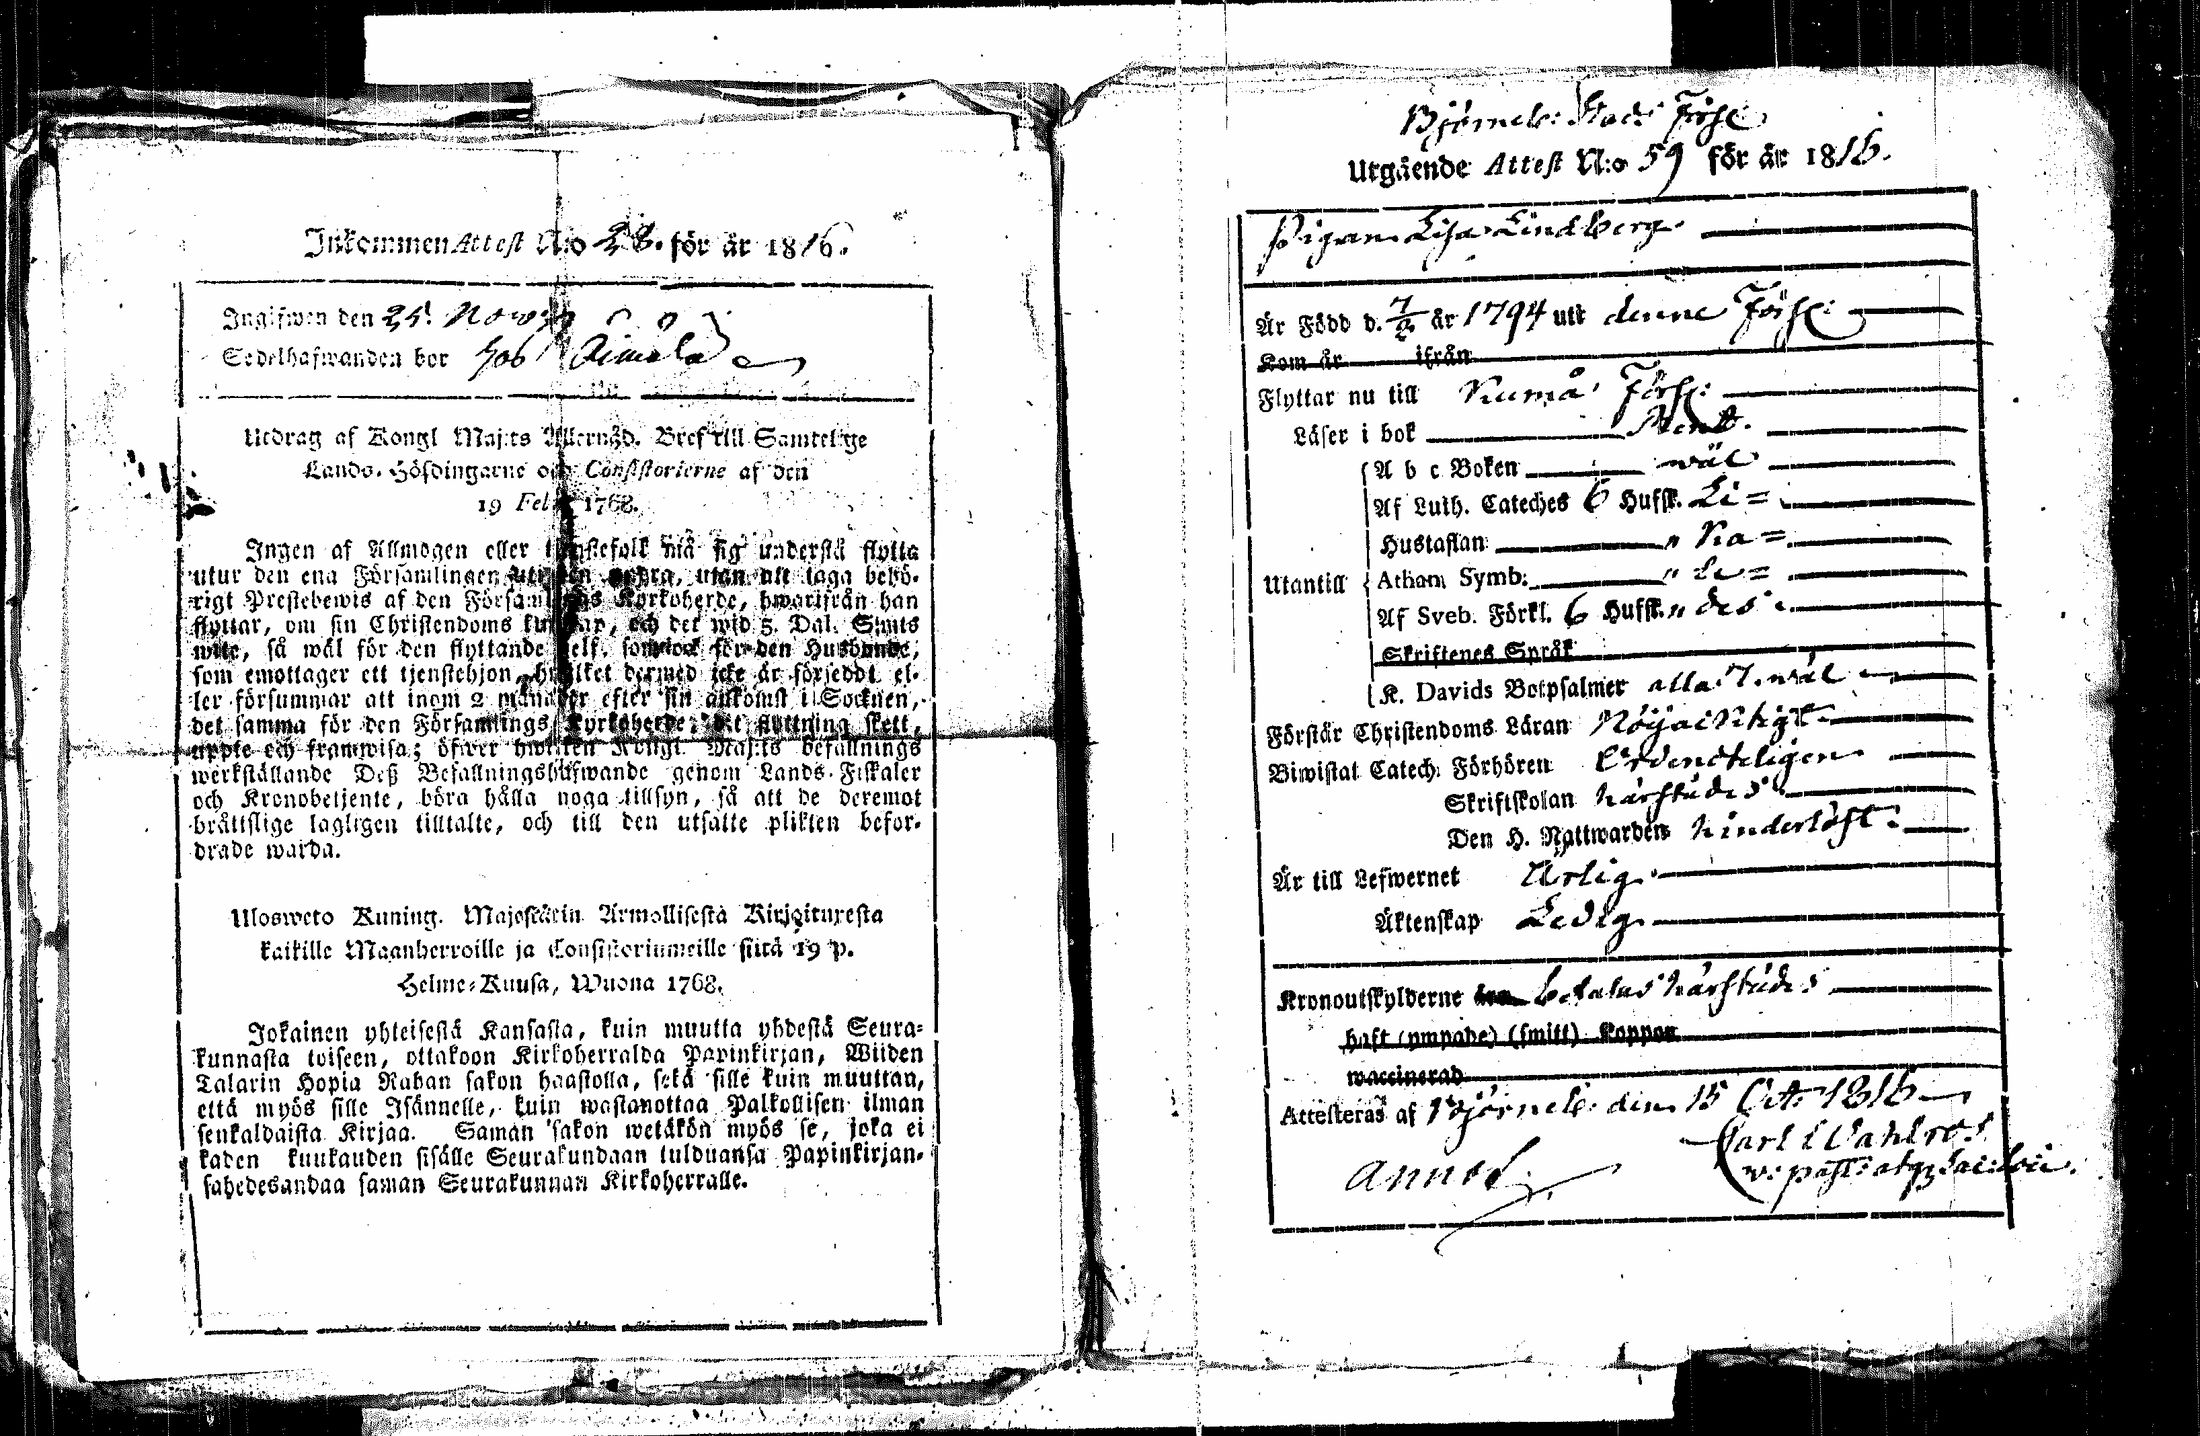 Inkommen Attest N:o 28. för år 1816.
Ingifwen den 25. Nowbr
Sedelhafwanden bor hos
Utdrag af Kongl Maj:ts Allernåd. Bref till Samtelige
Lands-Höfdingarne och Consistorierne af den
19 Febr. 1768.
Ingen af Allmogen eller tjenstefolk må sig understå flytta
utur den ena Församlingen uti den andra, utan att taga behö-
rigt Prestebewis af den Församlings Kyrkoherde, hwarifrån han
flyttar, om sin Christendoms kunskap, och det wid 5. Dal. S:mts
wite, så wäl för den flyttande self, som ock för den Husbonde,
som emottager ett tjenstehjon, hwilket dermed icke är förseddt el-
ler försummar att inom 2 månader efter sin ankomst i Socknen,
det samma för den Församlings Kyrkoherde, dit flyttning skett,
uppte och framwisa; öfwer hwilken Kongl. Maj:ts befallnings
werkställande Deß Befallningshafwande genom Lands-Fiskaler
och Kronobetjente, böra hålla noga tillsyn, så att de deremot
bråttslige lagligen tilltalte, och till den utsatte plikten befor-
drade warda.
Ulosweto Kuning. Majestätin Armollisesta Kirjoituxesta
kaikille Maanherroille ja Consistoriumeille siitä 19 p.
Helme-Kuusa, Wuona 1768.
Jokainen yhteisestä Kansasta, kuin muutta yhdestä Seura-
kunnasta toiseen, ottakoon Kirkoherralda Papinkirjan, Wiiden
Talarin Hopia Rahan sakon haastolla, sekä sille kuin muuttan,
että myös sille Isännelle, kuin wastanottaa Palkollisen ilman
senkaldaista Kirjaa. Saman sakon wetäkön myös se, joka ei
kaden kuukauden sisälle Seurakundaan tulduansa Papinkirjan-
sahedesandaa saman Seurakunnan Kirkoherralle.
Björneb: Stads Förs:
Utgående Attest N:o 59 för år 1816.
Pigan Lisa Lindberg
Är Född d. 7/2 år 1794 utt denne Förs:
Kom år ifrån
Flyttar nu till Kumå Förs:
Läser i bok Rent.
A b c Boken wäl
Af Luth. Cateches 6 Hufst. Li=
Hustaflan " ka=
Athan Symb: " le=
Utantill
Af Sveb. Förkl. 6 Hufst. " des.
Skriftenes Språk
K. Davids Botpsalmer alla 7. wäl
Förstår Christendoms Läran Nöjaktigt
Biwistat Catech. Förhören Ordenteligen
Skriftskolan härstädes
Den H. Nattwarden hinderlöst.
Är till Lefwernet Ärlig.
Äktenskap Ledig
Kronoutskylderne äro betalas härstädes
haft (ympade) (smitt) Koppor
waccinerad
Attesteras af Björneb: den 15 Oct: 1816
Carl E Wahlros
w: past: